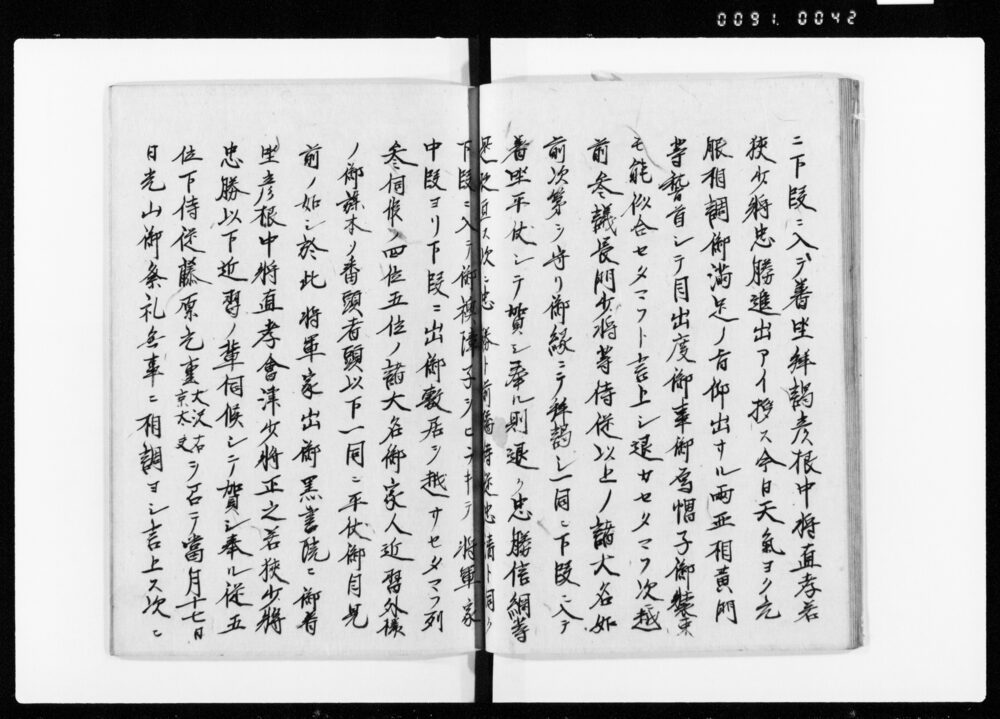 0091.0042
ニ下段ニ入テ着坐拝謁彦根中将直孝若
狭少将忠勝進出アイ拶ス今日天氣ヨク元
服相調御満足ノ旨仰出サル両亜相黄門
等稽首シテ目出度御事御烏帽子御装束
モ能似合セタマフト言上シ退カセタマフ次越
前参議長門少将等侍従以上ノ諸大名如
前次第シ守リ御縁ニテ拝謁シ一同ニ下段ニ入テ
着坐平伏シテ賀シ奉ル則退ク忠勝信綱等
下段ニ入テ御襖障子シヒラキテ将軍家
中段ヨリ下段ニ出御敷居シ越サセタマフ列
参伺候ノ四位五位ノ諸大名御家人近習外様
ノ御譜代ノ番頭者頭以下一同ニ平伏御目見
前ノ如シ於此将軍家出御黒書院ニ御着
坐彦根中将直孝會津少将正之若狭少将
忠勝以下近習ノ輩伺候シテ賀シ奉ル従五
位下侍従藤原元重大沢右京大夫シ召テ當月十七日
日光山御祭礼無事ニ相調ヨシ言上ス次ニ